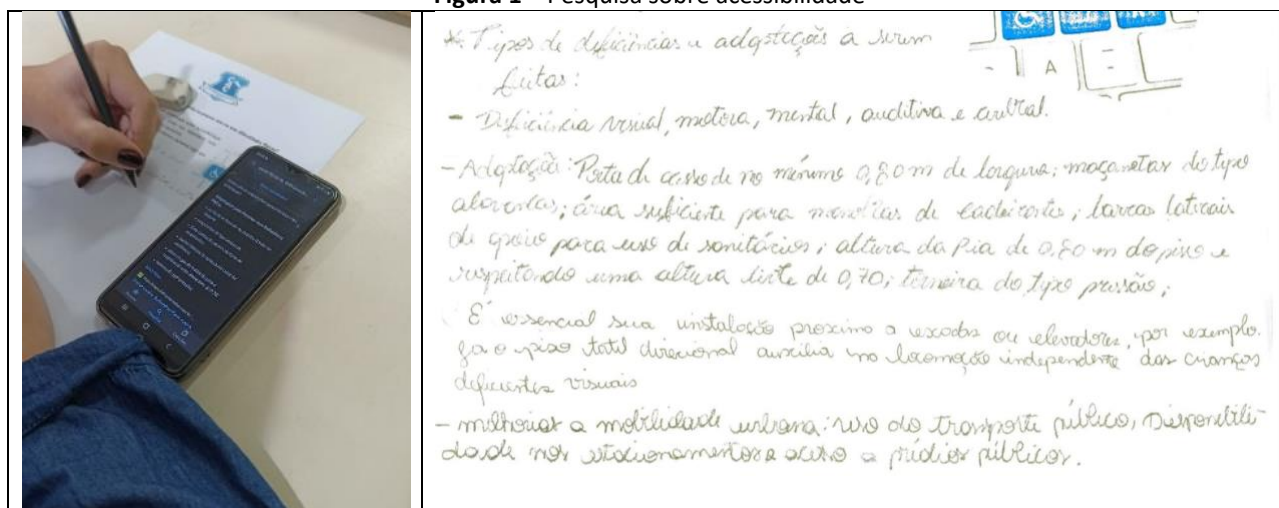 Figura 1 – Pesquisa sobre acessibilidade
* Tipos de deficiências e adaptações a serem
feitas:
A
- Deficiência visual, motora, mental, auditiva e
- Adaptação: Porta de acesso de no mínimo 0,80 m de largura; maçanetas do tipo
alavancas; área suficiente para de cadeirantes; barras laterais
de apoio para uso de sanitários; altura da Pia de 0,80 m do piso e
respeitando uma altura livre de 0,70; torneira do tipo pressão;
É essencial sua instalação proximo a escadas ou elevadores, por exemplo.
Ja o piso tatil direcional auxilia na locomoção independente das crianças
deficientes visuais
- melhorar a mobilidade urbana: uso do transporte público, Disponibili-
dade nos estacionamentos e acesso a prédios públicos.